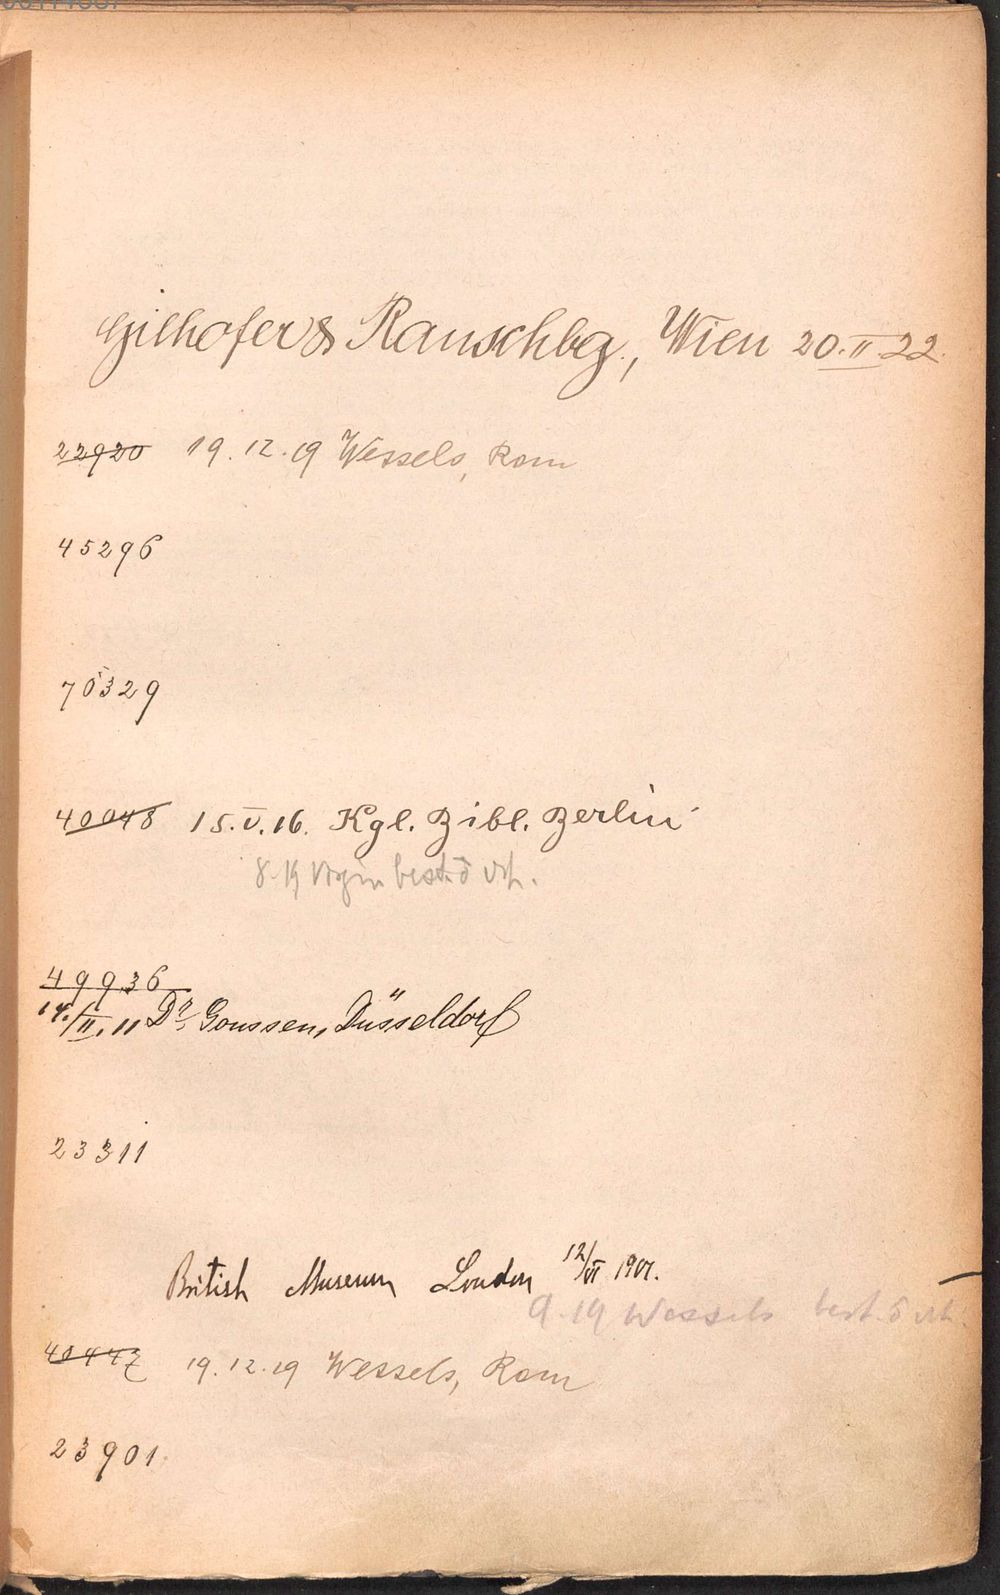 Gilhofer & Ranschbg., Wien 20.II.22.
22920 19.12.19 Wessels, Rom
45296
70329
40048 15.V.16. Kgl. Bibl. Berlin
8.19
49936
14./II.11 Dr. Goussen, Düsseldorf
23311
British Museum London 12/VI 1901.
9.19 Wessels best.
40447 19.12.19 Wessels, Rom
23901